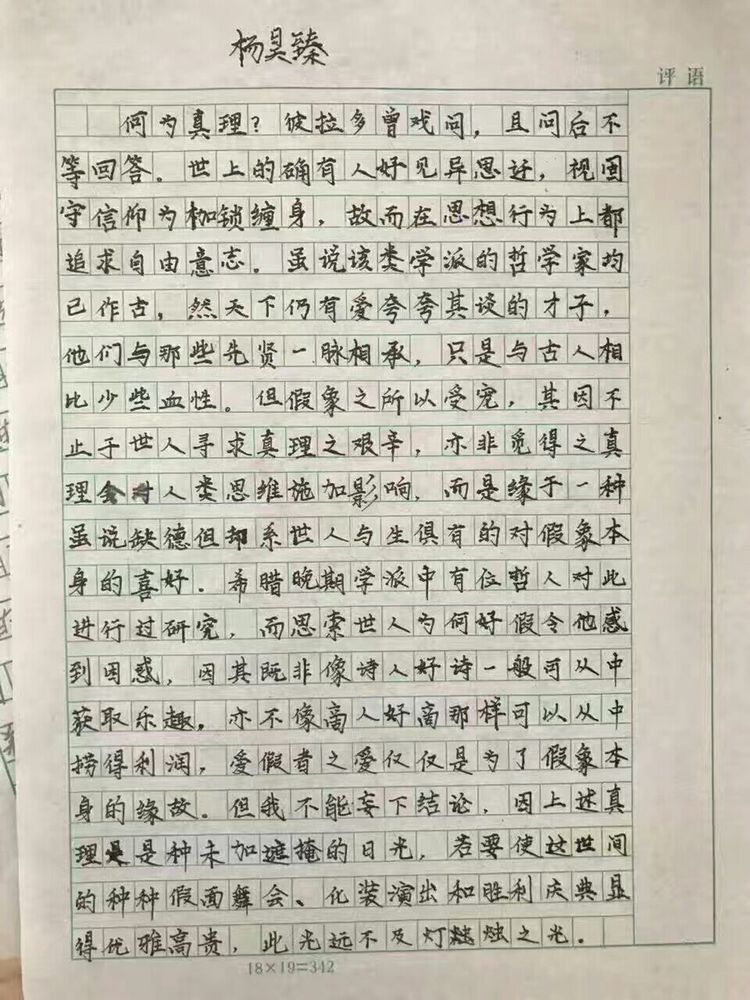 杨昊臻
评语
何为真理？彼拉多曾戏问，且问后不
等回答。世上的确有人好见异思迁，视固
守信仰为枷锁缠身，故而在思想行为上都
追求自由意志。虽说该类学派的哲学家均
已作古，然天下仍有爱夸夸其谈的才子，
他们与那些先贤一脉相承，只是与古人相
比少些血性。但假象之所以受宠，其因不
止于世人寻求真理之艰辛，亦非觅得之真
理会对人类思维施加影响，而是缘于一种
虽说缺德但却系世人与生俱有的对假象本
身的喜好．希腊晚期学派中有位哲人对此
进行过研究，而思索世人为何好假令他感
到困惑，因其既非像诗人好诗一般可从中
获取乐趣，亦不像商人好商那样可以从中
捞得利润，爱假者之爱仅仅是为了假象本
身的缘故。但我不能妄下结论，因上述真
理是种未加遮掩的日光，若要使这世间
的种种假面舞会、化装演出和胜利庆典显
得优雅高贵，此光远不及灯烛之光。
18×19=342